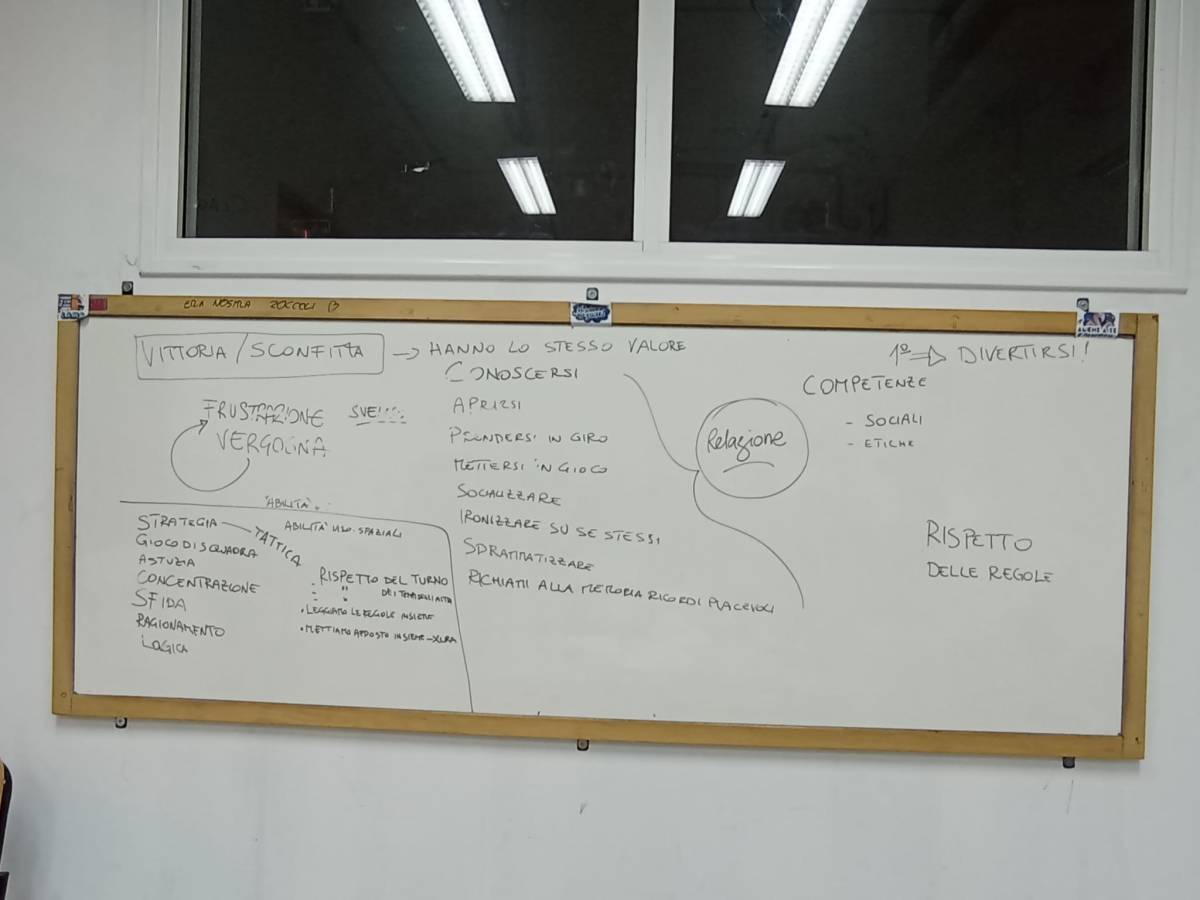 ERA NOSTRA ZOCCOLI
VITTORIA/SCONFITTA → HANNO LO STESSO VALORE
1º ⇒ DIVERTIRSI!
FRUSTRAZIONE
VERGOGNA
CONOSCERSI
APRIRSI
PRENDERSI IN GIRO
METTERSI IN GIOCO
SOCIALIZZARE
IRONIZZARE SU SE STESSI
SDRAMMATIZZARE
RICHIAMI ALLA MEMORIA RICORDI PIACEVOLI
Relazione
COMPETENZE
- SOCIALI
- ETICHE
RISPETTO
DELLE REGOLE
"ABILITÀ"
STRATEGIA — TATTICA
GIOCO DI SQUADRA
ASTUZIA
CONCENTRAZIONE
SFIDA
RAGIONAMENTO
LOGICA
ABILITÀ VISO-SPAZIALI
RISPETTO DEL TURNO
" DEI TEMPI
• LEGGIAMO LE REGOLE INSIEME
• METTIAMO APPOSTO INSIEME